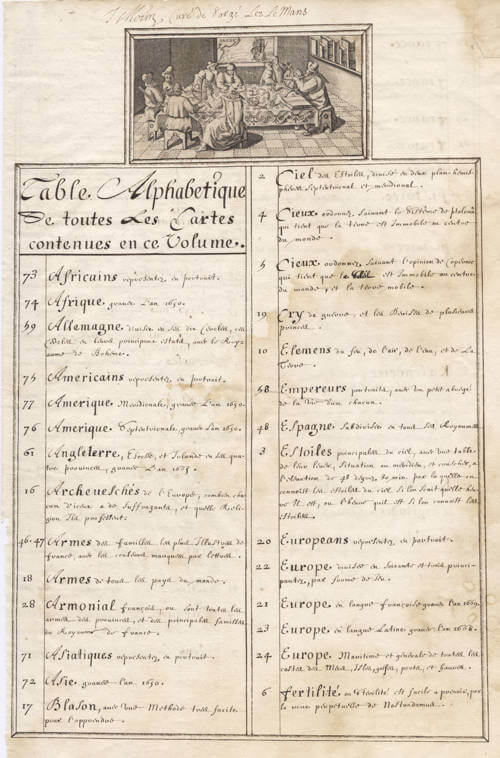 Curé de Vargé Lez Le Mans
Table Alphabetique
De toutes Les Cartes
contenues en ce Volume.
73 Africains representez en portrait.
74 Afrique, gravee L'an 1650.
59 Allemagne, divisee en ses dix Cercles, ces
Cercles en leurs principaux estats, avec le Royau
aume de Boheme.
75 Americains representez en portrait.
77 Amerique, Meridionale, gravee L'an 1650.
76 Amerique Septentrionale, gravee L'an 1650.
61 Angleterre, Escosse, et Irlande en ses qua
tre provinces, gravee L'an 1675.
16 Archeveschés de l'Europe, combien cha
cun d'iceux a de Suffragants, et quelle Reli
gion Ils professent.
46.47 Armes des familles les plus Illustres de
france, avec les couleurs marquees par lettres.
18 Armes de tous les pays du monde.
28 Armorial françois, ou sont toutes les
armes des provinces, et des principales familles
du Royaume de france.
71 Asiatiques representez en portrait.
72 Asie, gravee L'an 1650.
17 Blason, avec une Methode tres facile
pour l'apprendre.
2 Ciel des Estoilles, divisé en deux plan-hemis
pheres Septentrional et meridional.
4 Cieux ordonnez, suivant le Sisteme de ptolomee
qui tient que la terre est Immobile au centre
du monde.
5 Cieux ordonnez, suivant l'opinion de Copernic
qui tient que le Soleil est Immobile au centre
du monde, et la terre mobile.
19 Cry de guerre, et les Devises de plusieurs
princes.
10 Elemens du feu, de l'air, de l'eau, et de La
Terre.
58 Empereurs portraits, avec un petit abregé
de la Vie d'un chacun.
48 Espagne Subdivisee en tous ses Royaumes.
3 Estoiles principales du ciel, avec une table
de leur lever, Situation au meridien, et coucher, a
l'elevation de 48 degrez, 50 min. par laquelle on
connoist les estoilles du ciel, Si l'on sçait quelle heu
re Il est, ou l'heure qu'il est Si l'on connoist les
estoilles.
20 Europeans representez en portrait.
22 Europe, divisee en
21 Europe en langue françoise gravee L'an 1669.
23 Europe en langue Latine gravee L'an 1668.
24 Europe Maritime et generale de toutes les
costes des Mers, Isles, golfes, ports, et havres.
6 Fertilité ou Sterilité est facile a prevoir, par
la roue perpetuelle de Nostradamus.